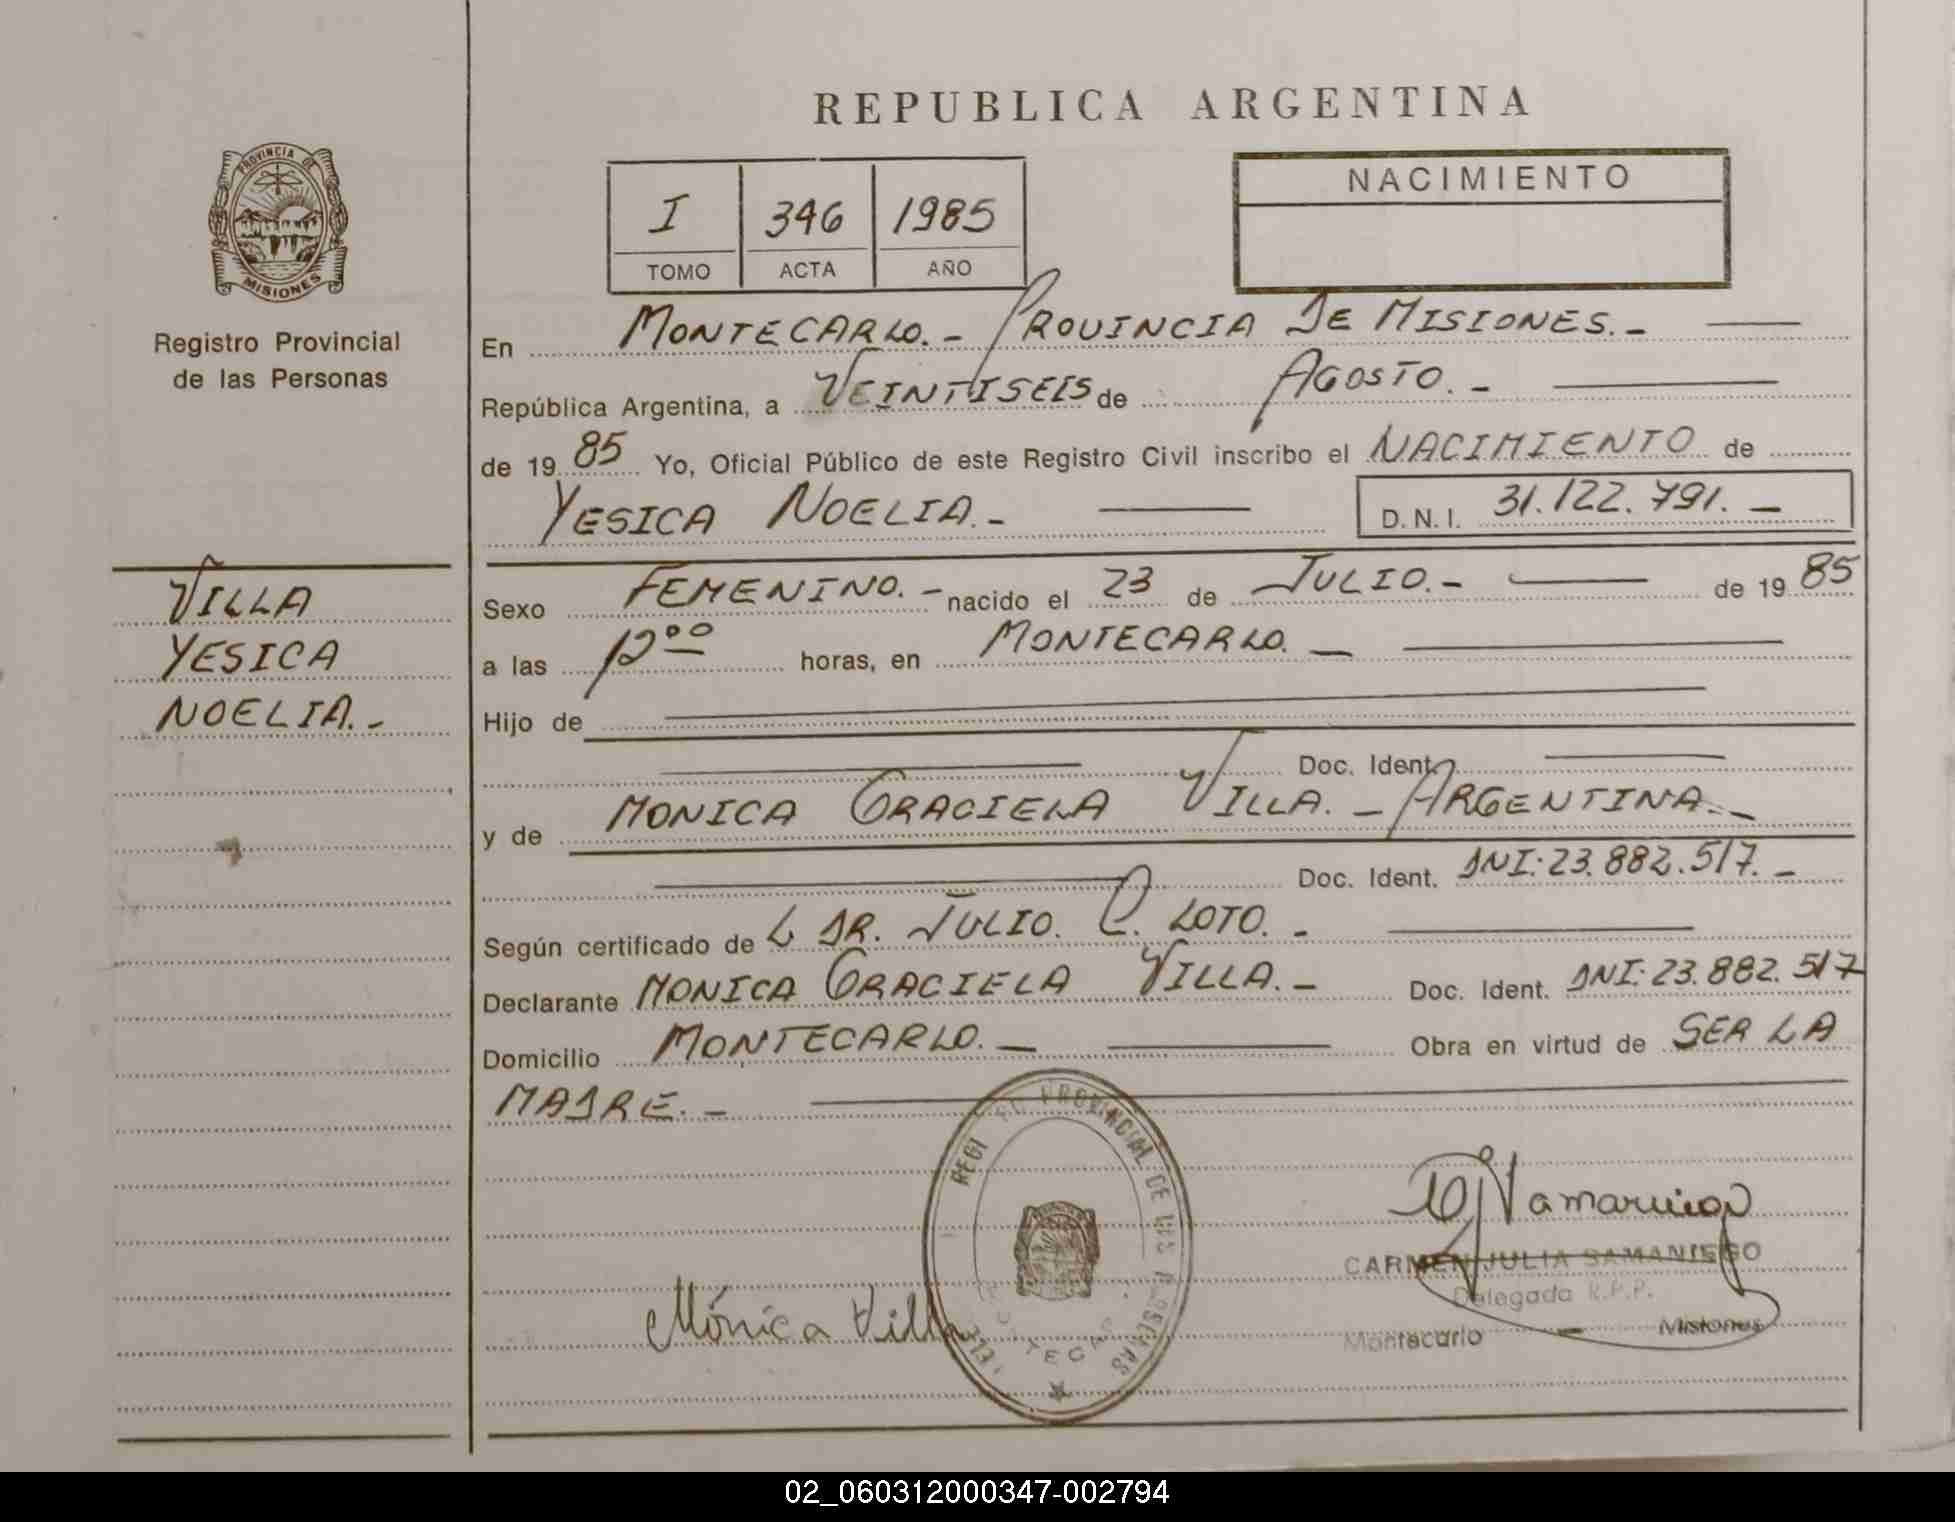 REPUBLICA ARGENTINA
PROVINCIA DE
MISIONES
Registro Provincial
de las Personas
I 346 1985
TOMO ACTA AÑO
NACIMIENTO
En MONTECARLO.- PROVINCIA DE MISIONES.-
República Argentina, a VEINTISEIS de AGOSTO.-
de 1985 Yo, Oficial Público de este Registro Civil inscribo el NACIMIENTO de
YESICA NOELIA.- D.N.I. 31.122.791.-
VILLA
YESICA
NOELIA.-
Sexo FEMENINO.- nacido el 23 de JULIO.- de 1985
a las 12⁰⁰ horas, en MONTECARLO.-
Hijo de
Doc. Ident.
y de MONICA GRACIELA VILLA.- ARGENTINA.-
Doc. Ident. DNI:23.882.517.-
Según certificado de DR. JULIO. C. LOTO.-
Declarante MONICA GRACIELA VILLA.- Doc. Ident. DNI:23.882.517
Domicilio MONTECARLO.- Obra en virtud de SER LA
MADRE.-
PROVINCIAL DE
CARMEN JULIA SAMANIEGO
Delegada R.P.P.
Montecarlo - Misiones
Mónica Villa
02_060312000347-002794